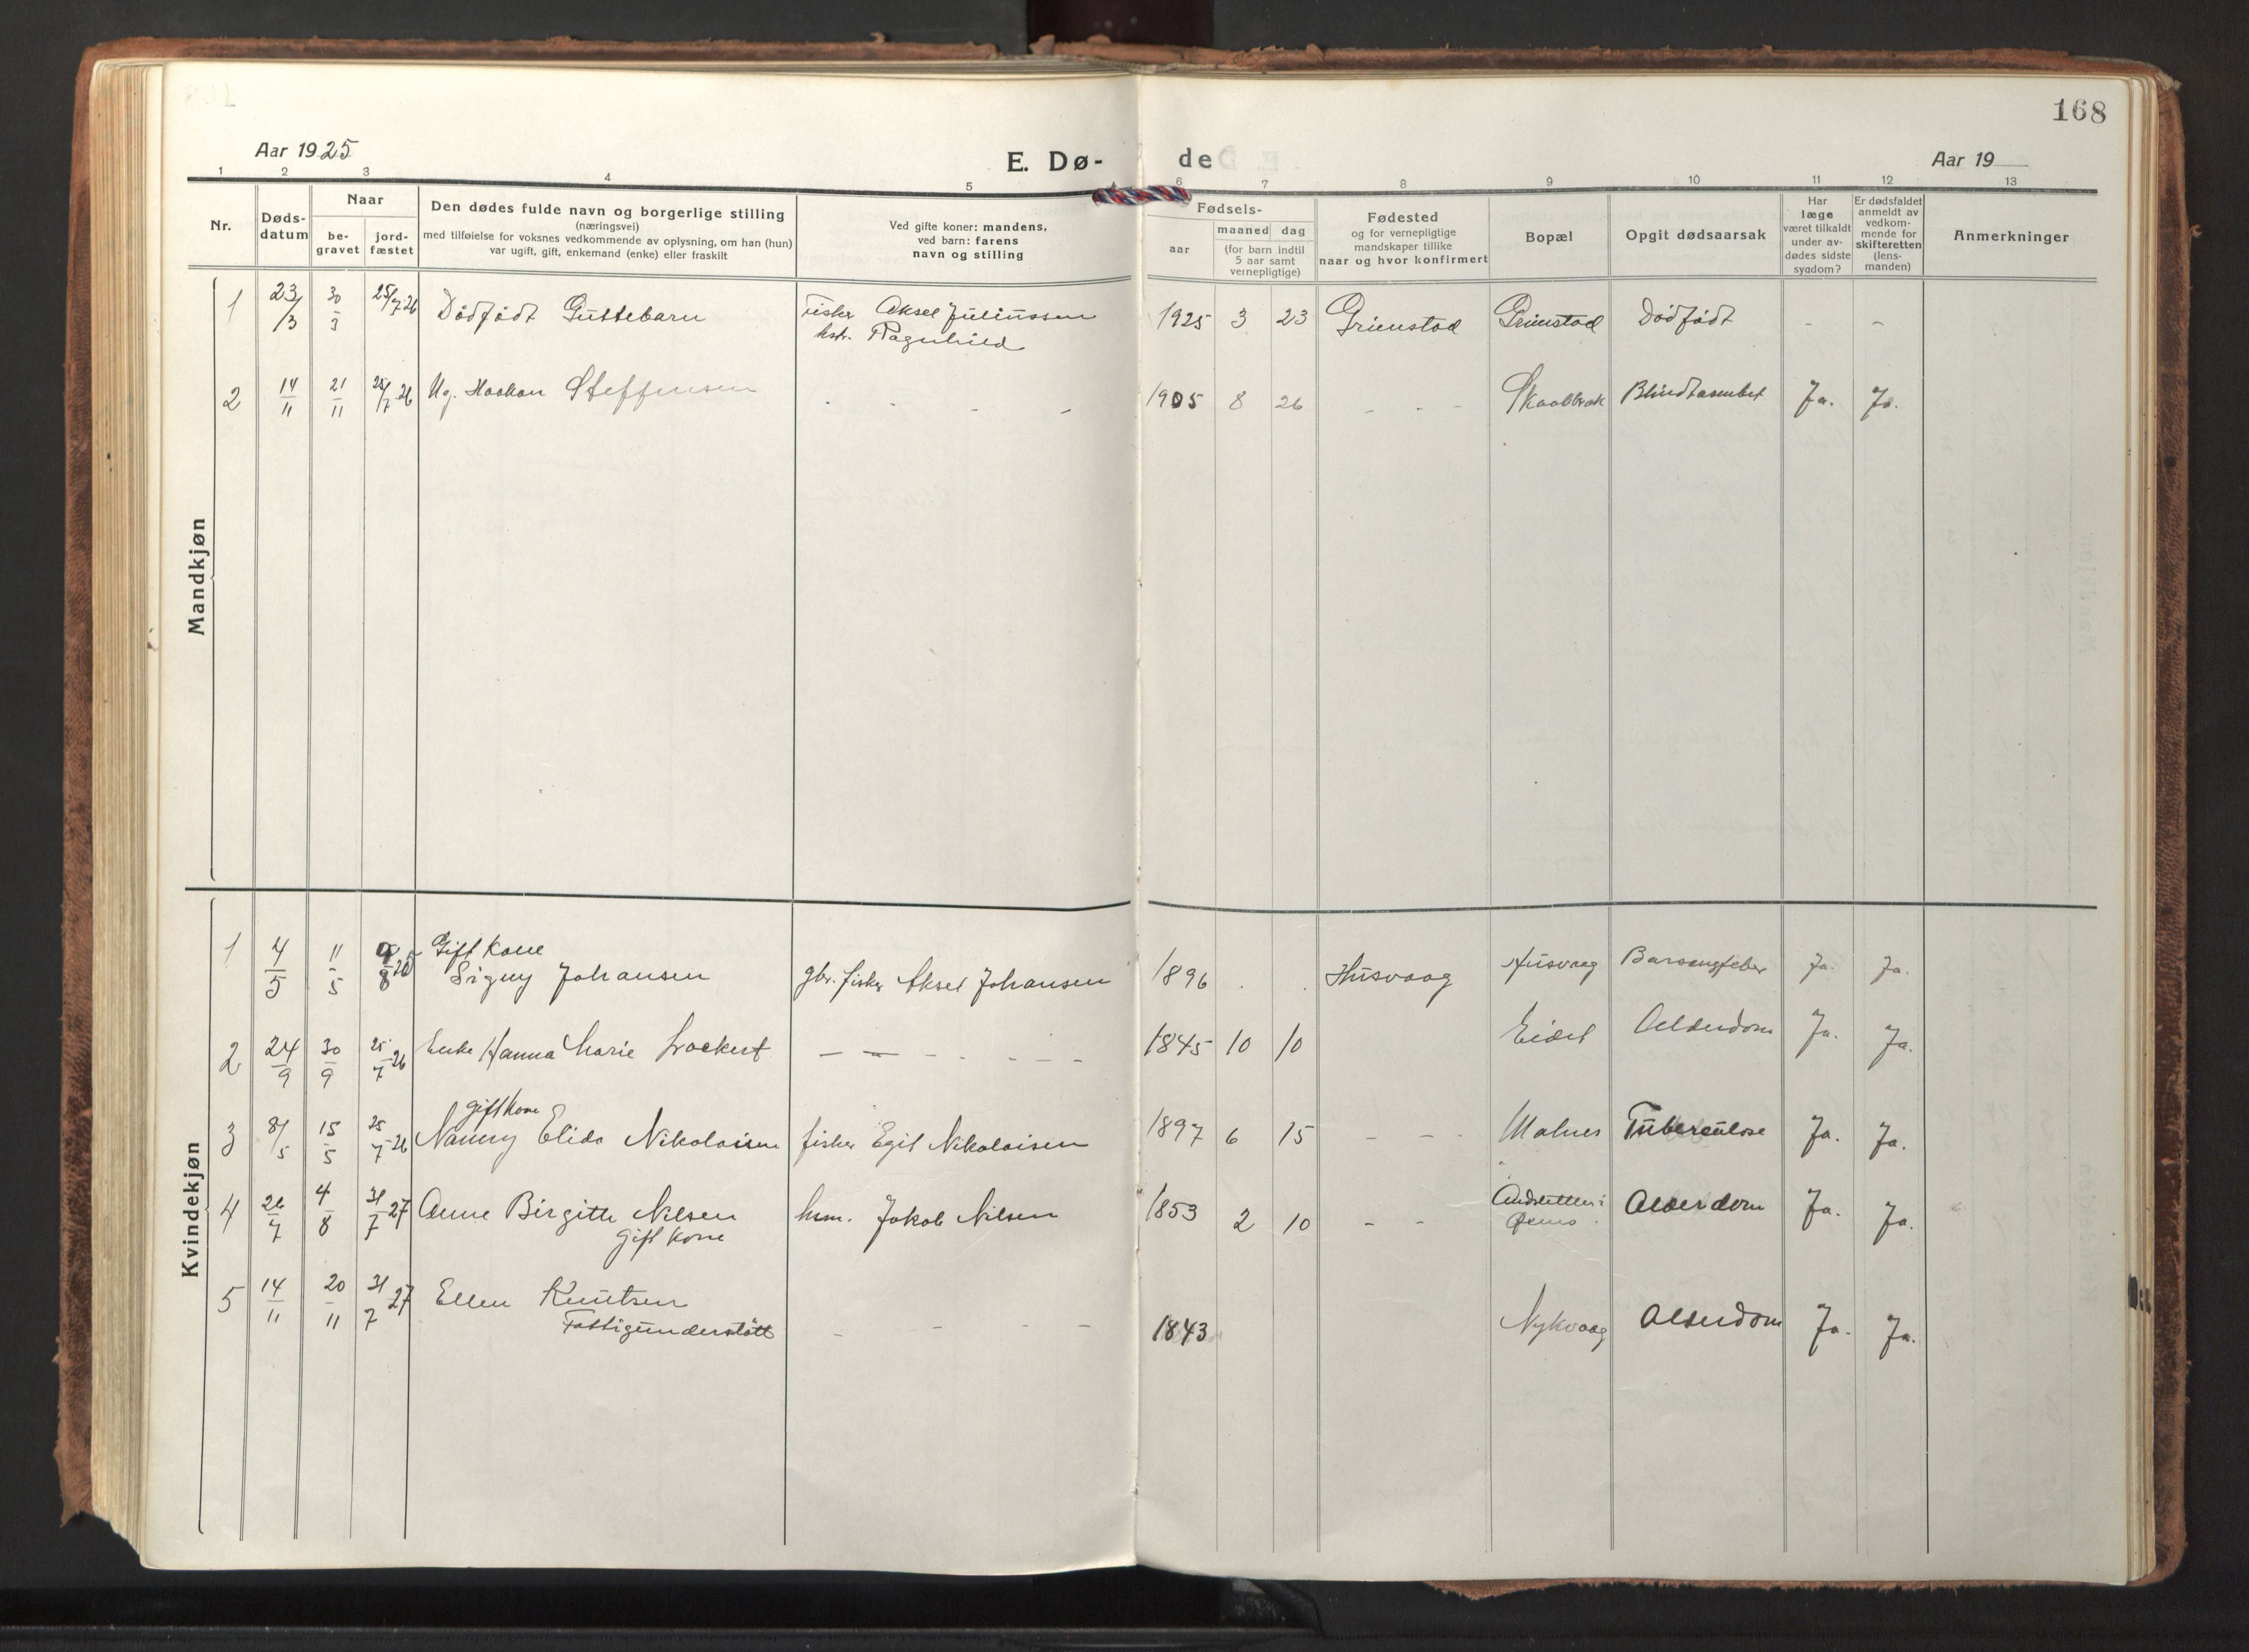 168
Aar 1925
E. Dø-
de
Aar 19
1 2 3 4 5 6 7 8 9 10 11 12 13
Nr.
Døds-
datum
Naar
be-
gravet
jord-
fæstet
Den dødes fulde navn og borgerlige stilling
(næringsvei)
med tilføielse for voksnes vedkommende av oplysning, om han (hun)
var ugift, gift, enkemand (enke) eller fraskilt
Ved gifte koner: mandens,
ved barn: farens
navn og stilling
Fødsels-
aar
maaned dag
(for barn indtil
5 aar samt
vernepligtige)
Fødested
og for vernepligtige
mandskaper tillike
naar og hvor konfirmert
Bopæl
Opgit dødsaarsak
Har
læge
været tilkaldt
under av-
dødes sidste
sygdom?
Er dødsfaldet
anmeldt av
vedkom-
mende for
skifteretten
(lens-
manden)
Anmerkninger
Mandkjøn
1 23/3 30/3 25/7 26 Dödfödt Guttebarn Fisker Aksel Juliussen 1925 3 23 Grimstad Grimstad Dödfödt - -
hstr. Ragnhild
2 14/11 21/11 25/7 26 Ug. Haakon Steffensen - - - - 1905 8 26 - - - Skaalbrek Blindtarmbet Ja. Ja.
Kvindekjøn
1 4/5 11/5 9/8 26 Gift Kone
Signy Johansen gbr. fisker Aksel Johansen 1896 . . Husvaag Husvaag Barselsfeber Ja. Ja.
2 24/9 30/9 25/7 26 Enke Hanna Marie Lockert - - - - - - 1845 10 10 Eidet Alderdom Ja. Ja.
gift Kone
3 8/5 15/5 25/7 26 Nanny Elida Nikolaisen fisker Egil Nikolaisen 1897 6 15 - - - Malnes Tuberculose Ja. Ja.
4 26/7 4/8 31/7 27 Anne Birgitte Nilsen hsm. Jakob Nilsen 1853 2 10 - - Alderdom Ja. Ja.
gift Kone
5 14/11 20/11 31/7 27 Ellen Knutsen
Fattigunderstött - - - - 1843 Nykvaag Alderdom Ja. Ja.